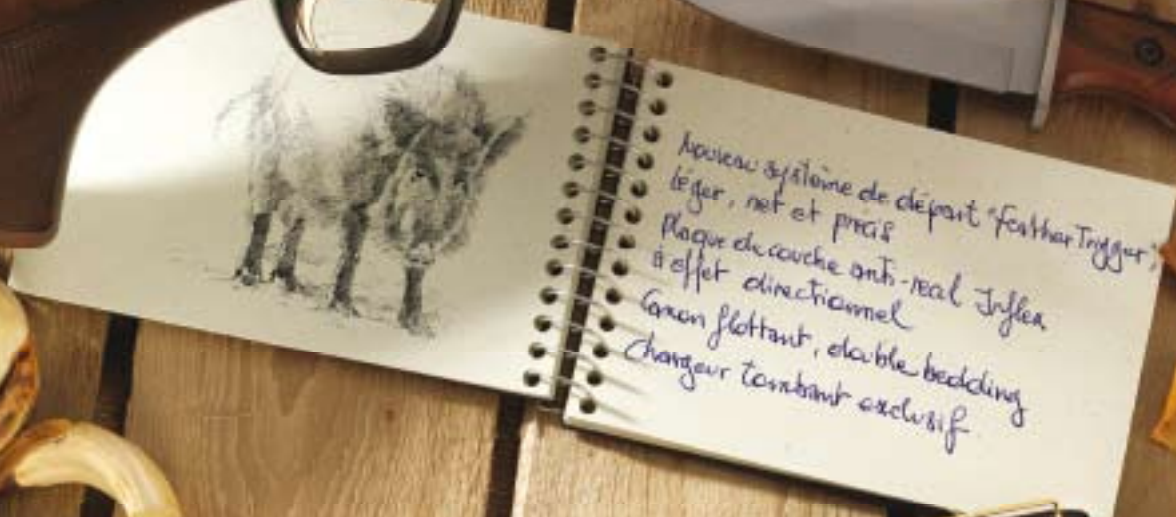 Nouveau système de départ "feather Trigger",
léger, net et précis
Plaque de couche anti-recul Inflex
à effet directionnel
Canon flottant, double bedding
Chargeur tombant exclusif